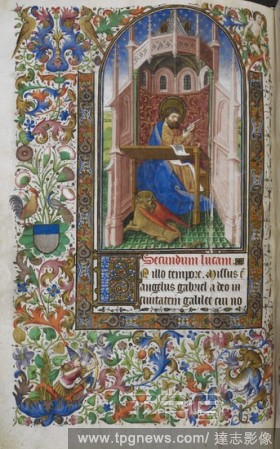 Secundum lucam.
In illo tempore. Missus est
angelus gabriel a deo in
ciuitatem galilee cui no
www.tpgnews.com/ 達志影像